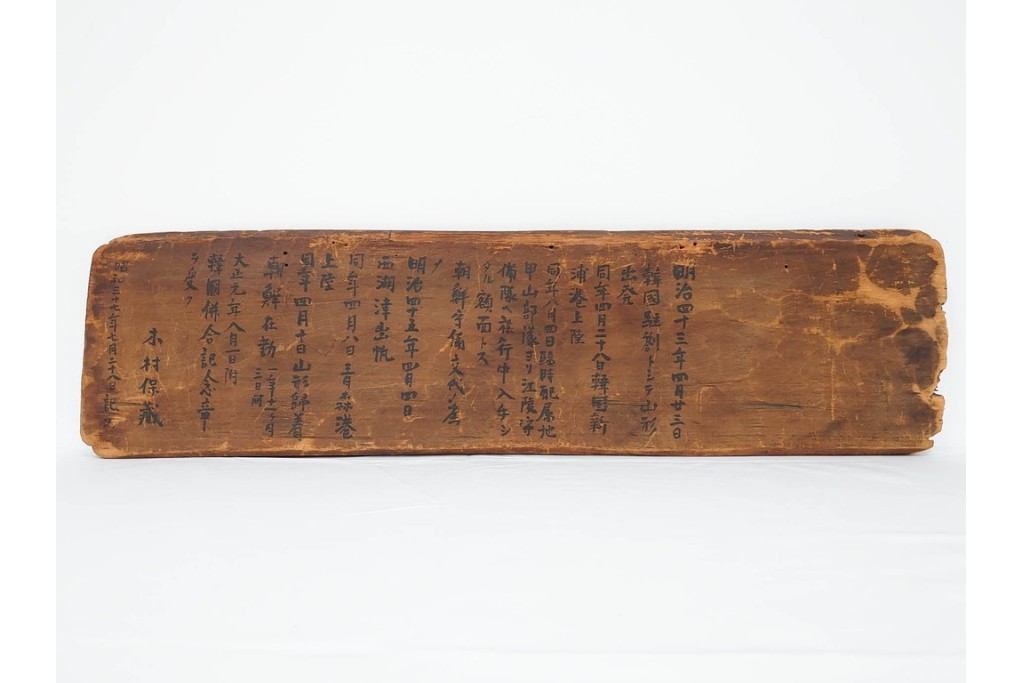 明治四十三年四月廿三日
韓國駐剳トシテ山形
出発
同年四月二十八日韓国新
浦港上陸
同年八月四日臨時配属地
甲山部隊ヨリ江陵守
備隊ヘ旅行中入手シ
タル額面トス
朝鮮守備交代ノ為
メ
明治四十五年四月四日
西湖津出帆
同年四月八日青森港
上陸
同年四月十日山形歸着
朝鮮在勤一年十一ヶ月
三日間
大正元年八月一日附
韓國併合記念章
ヲ受ク
木村保藏
昭和三十七年七月二十八日記